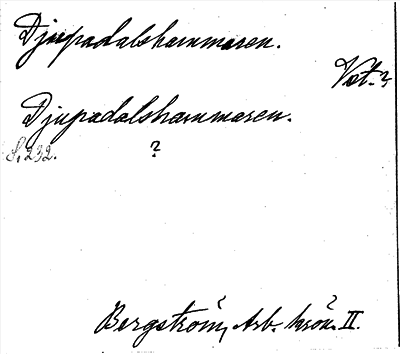 Djupadalshammaren.
Vst.?
Djupadalshammaren.
S. 232. ?
Bergström, Arb. krön. II.